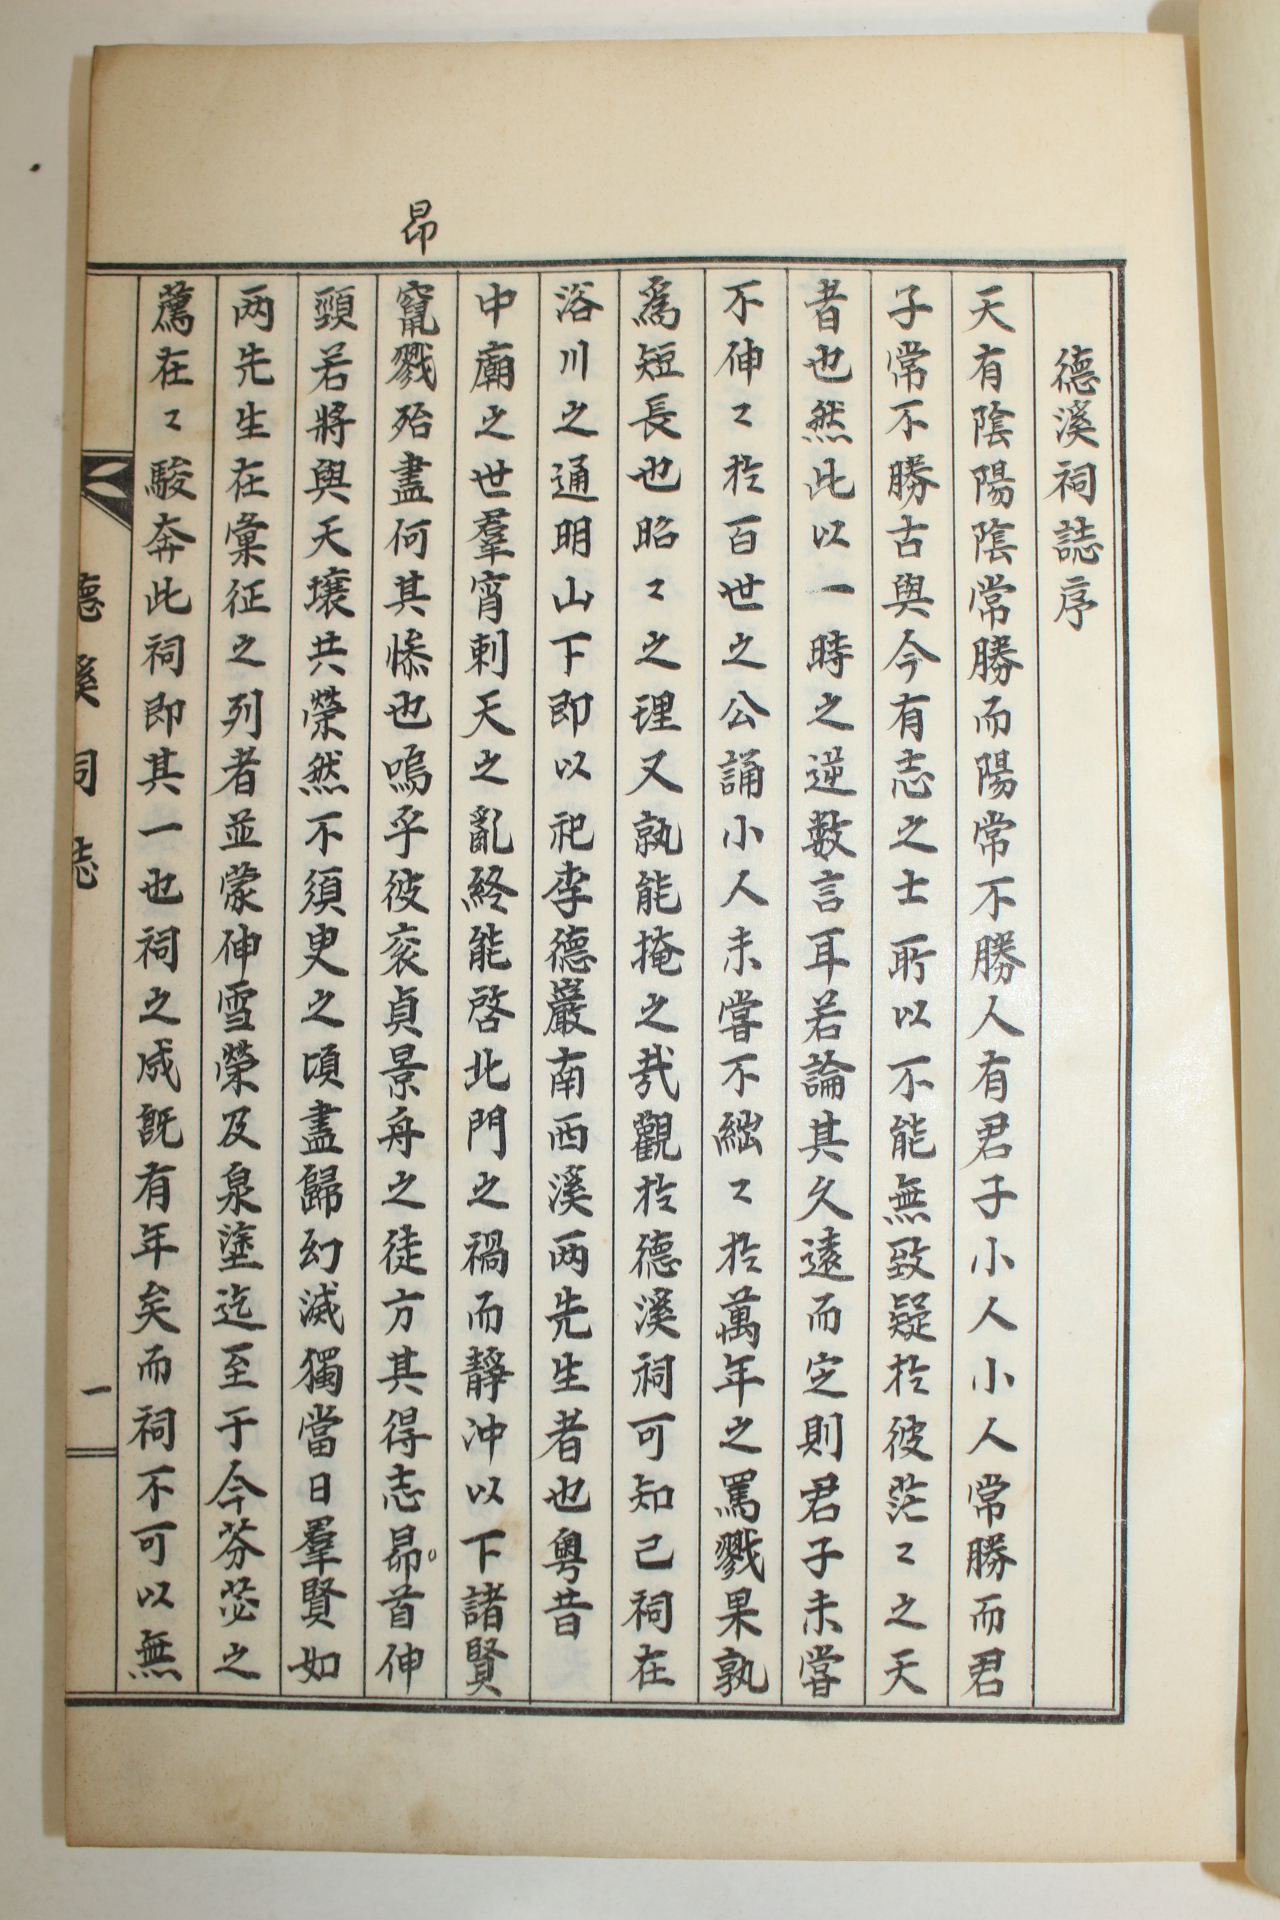 德溪祠誌序
天有陰陽陰常勝而陽常不勝人有君子小人小人常勝而君
子常不勝古與今有志之士所以不能無致疑於彼茫〻之天
者也然此以一時之逆數言耳若論其久遠而定則君子未嘗
不伸〻於百世之公誦小人未嘗不絀〻於萬年之罵戮果孰
爲短長也昭〻之理又孰能掩之哉觀於德溪祠可知已祠在
浴川之通明山下即以祀李德巖南西溪两先生者也粤昔
中廟之世羣宵刺天之亂終能啓北門之禍而靜沖以下諸賢
竄戮殆盡何其慘也嗚乎彼衮貞景舟之徒方其得志昻首伸
頸若將與天壤共榮然不須叟之頃盡歸幻滅獨當日羣賢如
两先生在彙征之列者並蒙伸雪榮及泉塗迄至于今芬苾之
薦在〻駿奔此祠即其一也祠之成旣有年矣而祠不可以無
昂
德溪祠誌
一